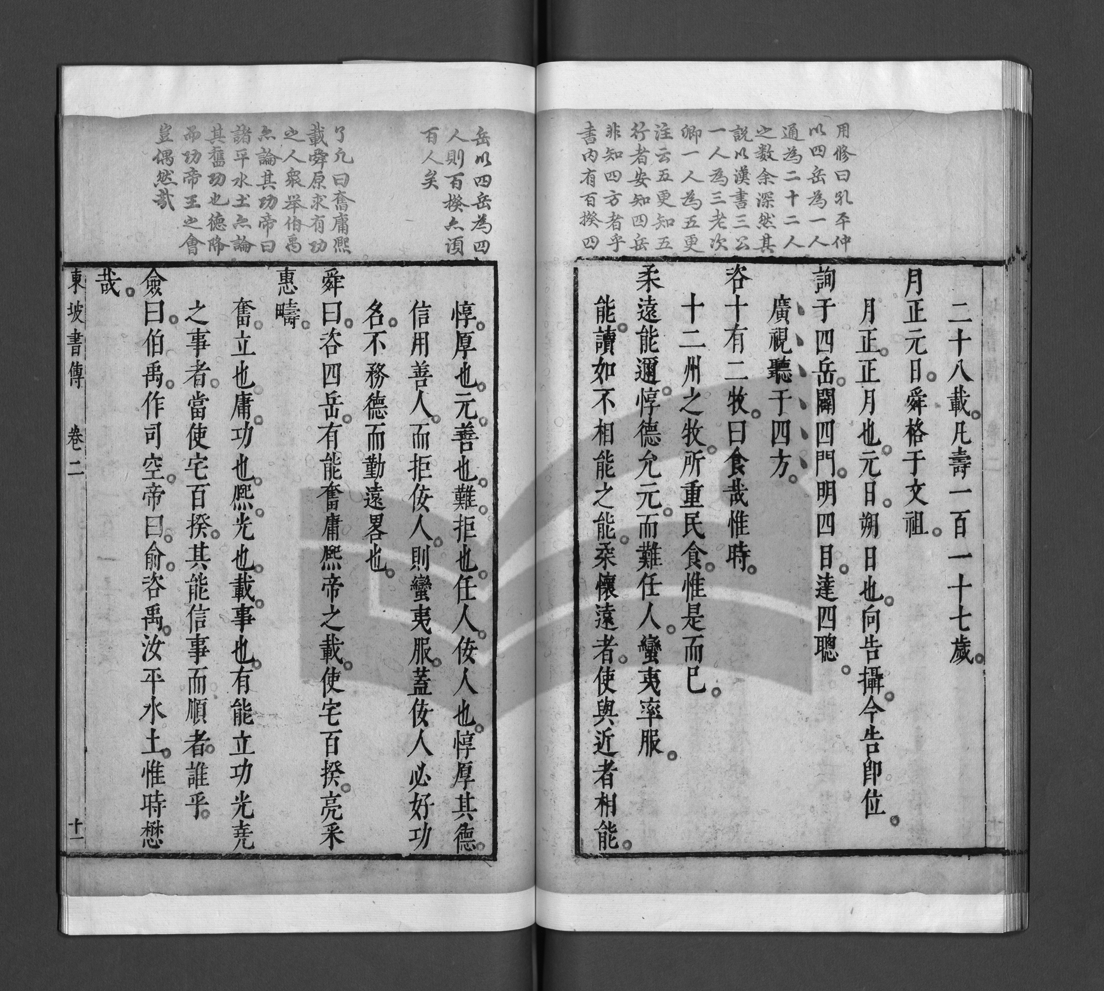 用修曰孔平仲
以四岳為一人
通為二十二人
之數余深然其
說以漢書三公
一人為三老次
卿一人為五更
注云五更知五
行者安知四岳
非知四方者乎
書內有百揆四
二十八載。凡壽一百一十七歲。
月正元日。舜格于文祖。
月正。正月也。元日。朔日也。向告攝。今告卽位。
詢于四岳。闢四門。明四目。達四聰。
廣視聽于四方。
咨十有二牧。曰食哉惟時。
十二州之牧。所重民食。惟是而已。
柔遠能邇。惇德允元。而難任人。蠻夷率服。
能。讀如不相能之能。柔懷遠者。使與近者相能。
岳以四岳為四
人則百揆亦須
百人矣
了凡曰奮庸熙
載舜原求有功
之人衆舉伯禹
亦論其功帝曰
諸平水土亦論
其舊功也德降
而功帝王之會
豈偶然哉
惇。厚也。元。善也。難。拒也。任人。佞人也。惇厚其德。
信用善人。而拒佞人。則蠻夷服。蓋佞人必好功
名。不務德而勤遠畧也。
舜曰。咨四岳。有能奮庸熙帝之載。使宅百揆。亮采
惠疇。
奮。立也。庸。功也。熙。光也。載。事也。有能立功光堯
之事者。當使宅百揆。其能信事而順者。誰乎。
僉曰。伯禹。作司空。帝曰。俞。咨禹。汝平水土。惟時懋
哉。
東坡書傳 卷二 十一